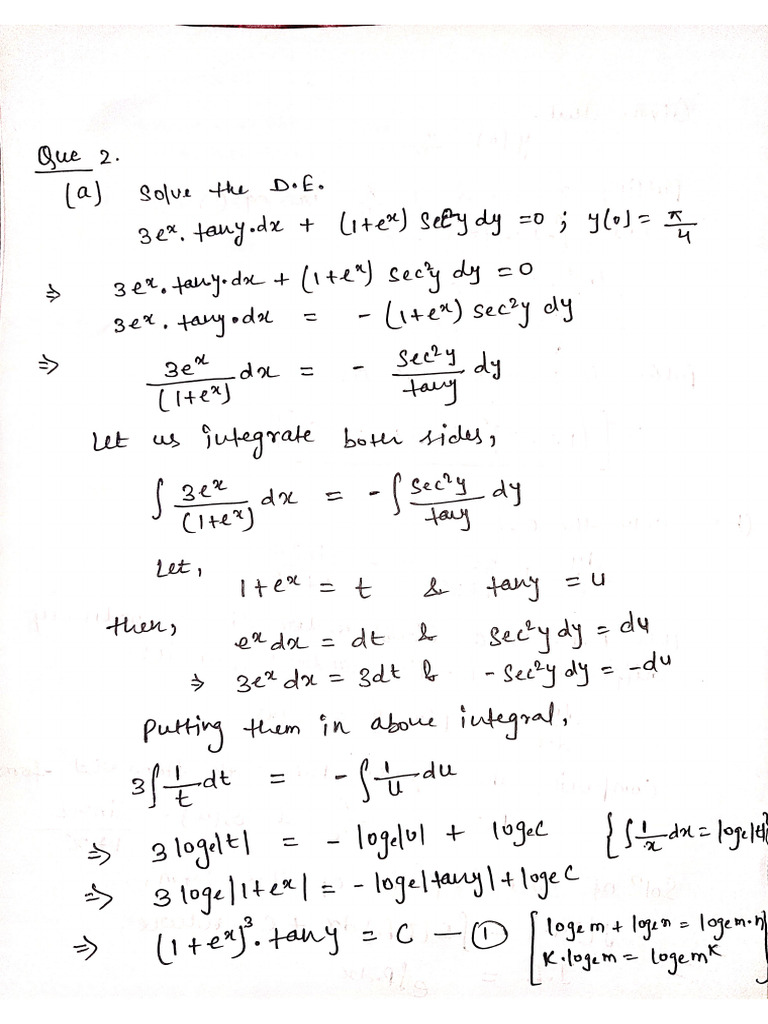 Que 2.
(a) Solve the D.E.
3eˣ. tany.dx + (1+eˣ) Sec²y dy = 0 ; y(0) = π/4
⇒ 3eˣ. tany.dx + (1+eˣ) sec²y dy = 0
3eˣ. tany.dx = - (1+eˣ) sec²y dy
⇒ 3eˣ/(1+eˣ) dx = - Sec²y/tany dy
Let us integrate both sides,
∫ 3eˣ/(1+eˣ) dx = -∫ Sec²y/tany dy
Let,
1+eˣ = t & tany = u
then,
eˣdx = dt & Sec²y dy = du
⇒ 3eˣ dx = 3dt & -Sec²y dy = -du
Putting them in above integral,
3∫ 1/t dt = -∫ 1/u du
⇒ 3 logₑ|t| = - logₑ|u| + logₑC {∫ 1/x dx = logₑ|t|}
⇒ 3 logₑ|1+eˣ| = - logₑ|tany| + logₑ C
⇒ (1+eˣ)³. tany = C — ① [logₑm + logₑn = logₑm.n
K.logₑm = logₑmᴷ]